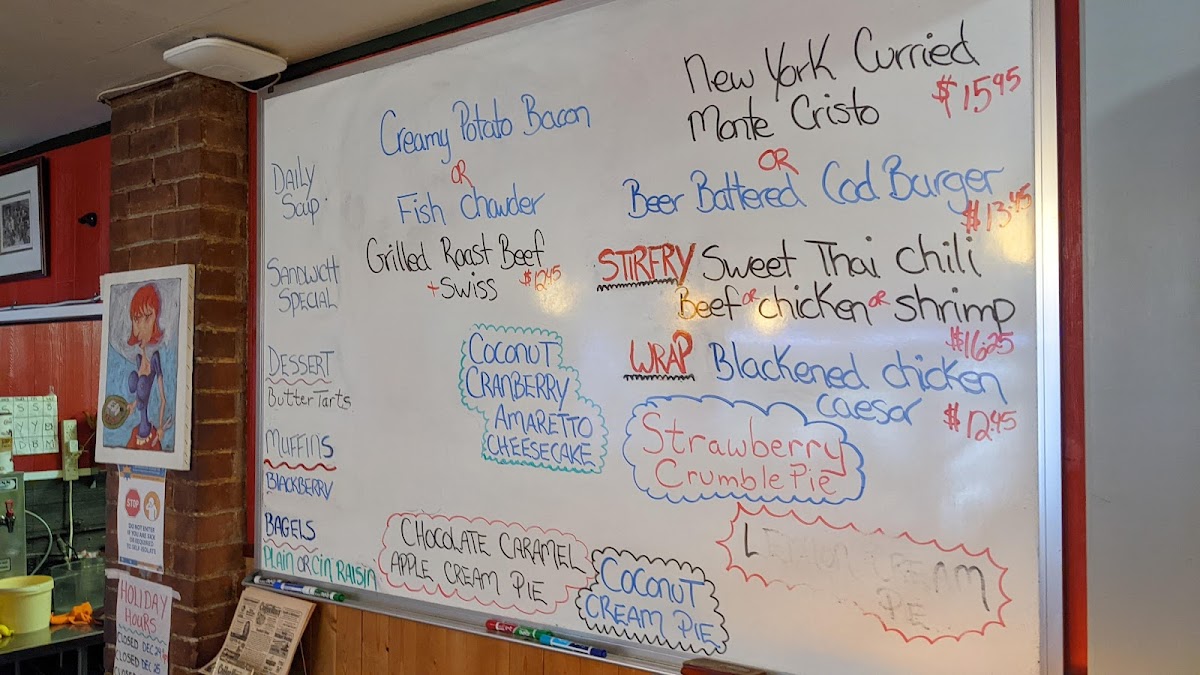 DAILY
Soup
Creamy Potato Bacon
OR
Fish Chowder
SANDWICH
SPECIAL
Grilled Roast Beef
+ Swiss $12.45
DESSERT
Butter Tarts
MUFFINS
BLACKBERRY
BAGELS
PLAIN OR CIN RAISIN
COCONUT
CRANBERRY
AMARETTO
CHEESECAKE
CHOCOLATE CARAMEL
APPLE CREAM PIE
COCONUT
CREAM PIE
New York Curried
Monte Cristo $15.95
OR
Beer Battered Cod Burger
$13.45
STIRFRY Sweet Thai chili
Beef or chicken or shrimp
$16.25
WRAP Blackened chicken
caesar $12.45
Strawberry
Crumble Pie
CREAM
PIE
STOP
DO NOT ENTER
IF YOU ARE SICK
OR REQUIRED
TO SELF-ISOLATE
HOLIDAY
HOURS
CLOSED DEC 24
CLOSED DEC 25
CLOSED DEC
S S